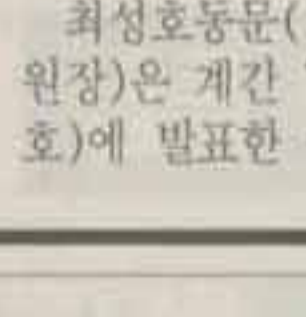 최성호동문(
원장)은 계간
호)에 발표한